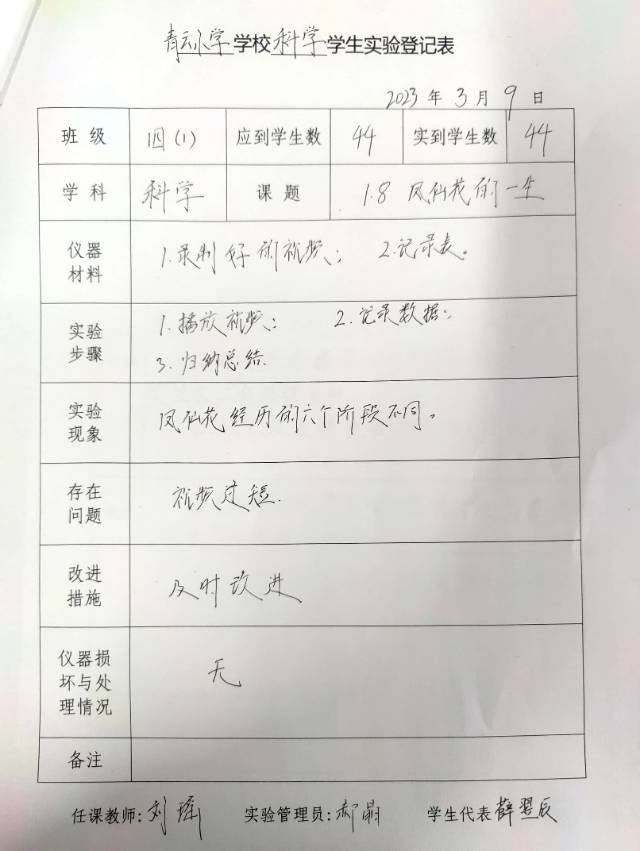 青云小学学校科学学生实验登记表
2023 年 3 月 9 日
班级 四(1) 应到学生数 44 实到学生数 44
学科 科学 课题 1.8 凤仙花的一生
仪器材料 1.录制好的视频; 2.记录表。
实验步骤 1.播放视频; 2.记录数据;
3.归纳总结.
实验现象 凤仙花经历的六个阶段不同。
存在问题 视频过短.
改进措施 及时改进
仪器损坏与处理情况 无
备注
任课教师:刘瑶 实验管理员:郝 学生代表 薛翌辰